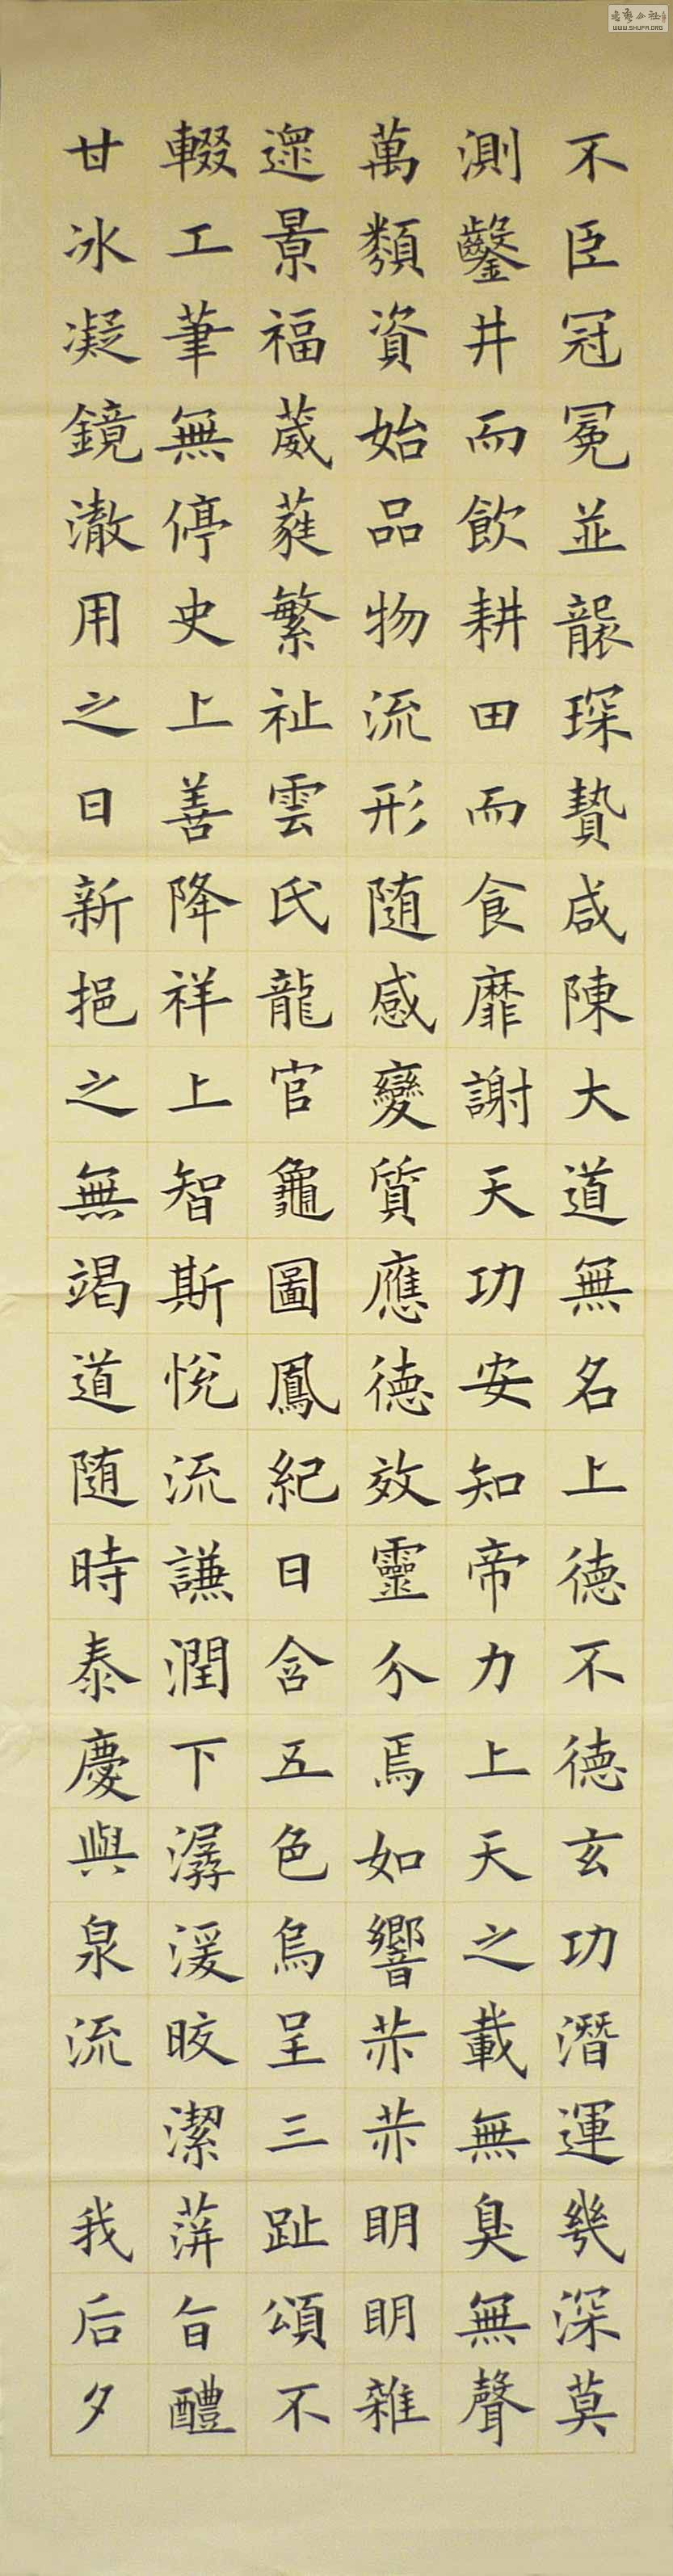 不臣冠冕並襲琛贄咸陳大道無名上德不德玄功潛運幾深莫
測鑿井而飲耕田而食靡謝天功安知帝力上天之載無臭無聲
萬類資始品物流形随感變質應德效靈介焉如響赫赫明明雜
遝景福葳蕤繁祉雲氏龍官龜圖鳳紀日含五色烏呈三趾頌不
輟工筆無停史上善降祥上智斯悅流謙潤下潺湲皎潔蓱旨醴
甘冰凝鏡澈用之日新挹之無竭道随時泰慶與泉流 我后夕
WWW.SHUFA.ORG